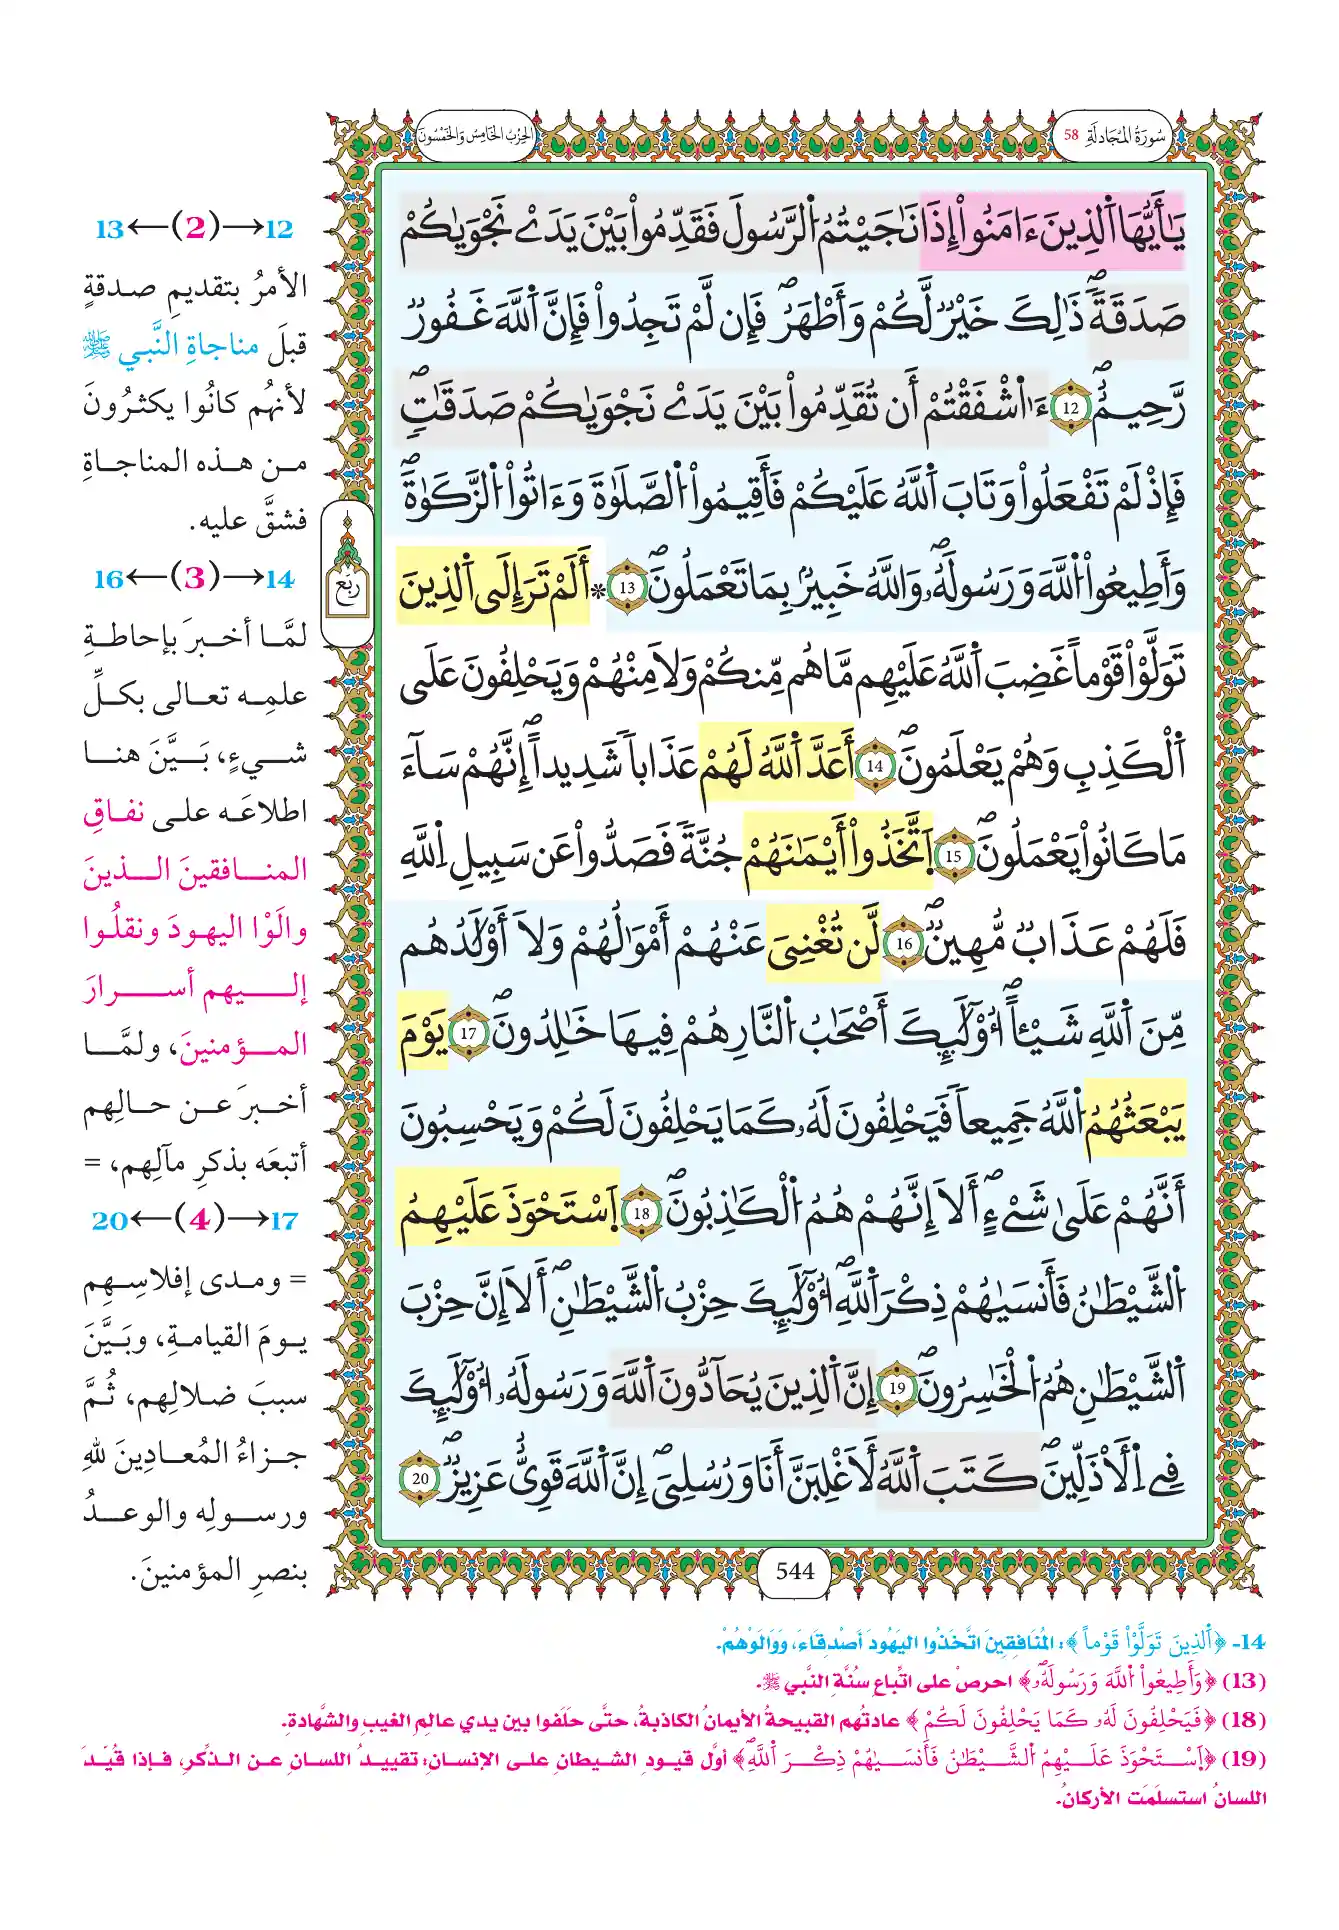 سُورَةُ المُجَادلَةِ 58
الحِزْبُ الخَامِسُ وَالخَمْسُونَ
يَٰأَيُّهَا اَ۬لذِينَ ءَامَنُواْ إِذَا نَٰجَيْتُمُ اُ۬لرَّسُولَ فَقَدِّمُواْ بَيْنَ يَدَےْ نَجْوَيٰكُمْ
صَدَقَةٗۖ ذَٰلِكَ خَيْرٞ لَّكُمْ وَأَطْهَرُۖ فَإِن لَّمْ تَجِدُواْ فَإِنَّ اَ۬للَّهَ غَفُورٞ
رَّحِيمٌۖ 12 ءَٰا۬شْفَقْتُمْ أَن تُقَدِّمُواْ بَيْنَ يَدَےْ نَجْوَيٰكُمْ صَدَقَٰتٖۖ
فَإِذْ لَمْ تَفْعَلُواْ وَتَابَ اَ۬للَّهُ عَلَيْكُمْ فَأَقِيمُواْ اُ۬لصَّلَوٰةَ وَءَاتُواْ اُ۬لزَّكَوٰةَۖ
وَأَطِيعُواْ اُ۬للَّهَ وَرَسُولَهُۥۖ وَاللَّهُ خَبِيرُۢ بِمَا تَعْمَلُونَۖ 13 * أَلَمْ تَرَ إِلَى اَ۬لذِينَ
تَوَلَّوْاْ قَوْماً غَضِبَ اَ۬للَّهُ عَلَيْهِم مَّا هُم مِّنكُمْ وَلَا مِنْهُمْ وَيَحْلِفُونَ عَلَى
اَ۬لْكَذِبِ وَهُمْ يَعْلَمُونَۖ 14 أَعَدَّ اَ۬للَّهُ لَهُمْ عَذَاباٗ شَدِيداًۖ إِنَّهُمْ سَآءَ
مَا كَانُواْ يَعْمَلُونَۖ 15 اَ۪تَّخَذُواْ أَيْمَٰنَهُمْ جُنَّةٗ فَصَدُّواْ عَن سَبِيلِ اِ۬للَّهِ
فَلَهُمْ عَذَابٞ مُّهِينٞۖ 16 لَّن تُغْنِيَ عَنْهُمْ أَمْوَٰلُهُمْ وَلَا أَوْلَٰدُهُم
مِّنَ اَ۬للَّهِ شَيْـٔاًۖ ا۟وْلَٰٓئِكَ أَصْحَٰبُ اُ۬لنَّارِ هُمْ فِيهَا خَٰلِدُونَۖ 17 يَوْمَ
يَبْعَثُهُمُ اُ۬للَّهُ جَمِيعاٗ فَيَحْلِفُونَ لَهُۥ كَمَا يَحْلِفُونَ لَكُمْ وَيَحْسِبُونَ
أَنَّهُمْ عَلَىٰ شَےْءٍۖ اَلَا إِنَّهُمْ هُمُ اُ۬لْكَٰذِبُونَۖ 18 اَ۪سْتَحْوَذَ عَلَيْهِمُ
اُ۬لشَّيْطَٰنُ فَأَنسَيٰهُمْ ذِكْرَ اَ۬للَّهِۖ أُوْلَٰٓئِكَ حِزْبُ اُ۬لشَّيْطَٰنِۖ أَلَا إِنَّ حِزْبَ
اَ۬لشَّيْطَٰنِ هُمُ اُ۬لْخَٰسِرُونَۖ 19 إِنَّ اَ۬لذِينَ يُحَآدُّونَ اَ۬للَّهَ وَرَسُولَهُۥ أُوْلَٰٓئِكَ
فِے اِ۬لْأَذَلِّينَۖ كَتَبَ اَ۬للَّهُ لَأَغْلِبَنَّ أَنَا وَرُسُلِيَۖ إِنَّ اَ۬للَّهَ قَوِيٌّ عَزِيزٞۖ 20
رُبْع
544
12→(2)←13
الأمرُ بتقديمِ صدقةٍ
قبلَ مناجاةِ النَّبي ﷺ
لأنهُم كانُوا يكثرُونَ
من هذه المناجاةِ
فشقَّ عليه.
14→(3)←16
لمَّا أخبرَ بإحاطةِ
علمِه تعالى بكلِّ
شيءٍ، بَيَّنَ هنا
اطلاعَه على نفاقِ
المنافقينَ الذينَ
والَوْا اليهودَ ونقلُوا
إليهم أسرارَ
المؤمنينَ، ولمَّا
أخبرَ عن حالِهم
أتبعَه بذكرِ مآلِهم، =
17→(4)←20
= ومدى إفلاسِهم
يومَ القيامةِ، وبَيَّنَ
سببَ ضلالِهم، ثُمَّ
جزاءُ المُعادِينَ للهِ
ورسولِه والوعدُ
بنصرِ المؤمنينَ.
14- ﴿اَ۬لذِينَ تَوَلَّوْاْ قَوْماً﴾: المُنَافِقِينَ اتَّخَذُوا اليَهُودَ أَصْدِقَاءَ، وَوَالَوْهُمْ.
(13) ﴿وَأَطِيعُواْ اُ۬للَّهَ وَرَسُولَهُۥۖ﴾ احرصْ على اتِّباعِ سُنَّةِ النَّبي ﷺ.
(18) ﴿فَيَحْلِفُونَ لَهُۥ كَمَا يَحْلِفُونَ لَكُمْ﴾ عادتُهم القبيحةُ الأيمانُ الكاذبةُ، حتَّى حلَفوا بين يدي عالمِ الغيبِ والشَّهادةِ.
(19) ﴿اَ۪سْتَحْوَذَ عَلَيْهِمُ اُ۬لشَّيْطَٰنُ فَأَنسَيٰهُمْ ذِكْرَ اَ۬للَّهِۖ﴾ أوَّل قيودِ الشيطانِ على الإنسانِ: تقييدُ اللسانِ عن الذِّكرِ، فإذا قُيِّدَ
اللسانُ استسلَمَت الأركانُ.